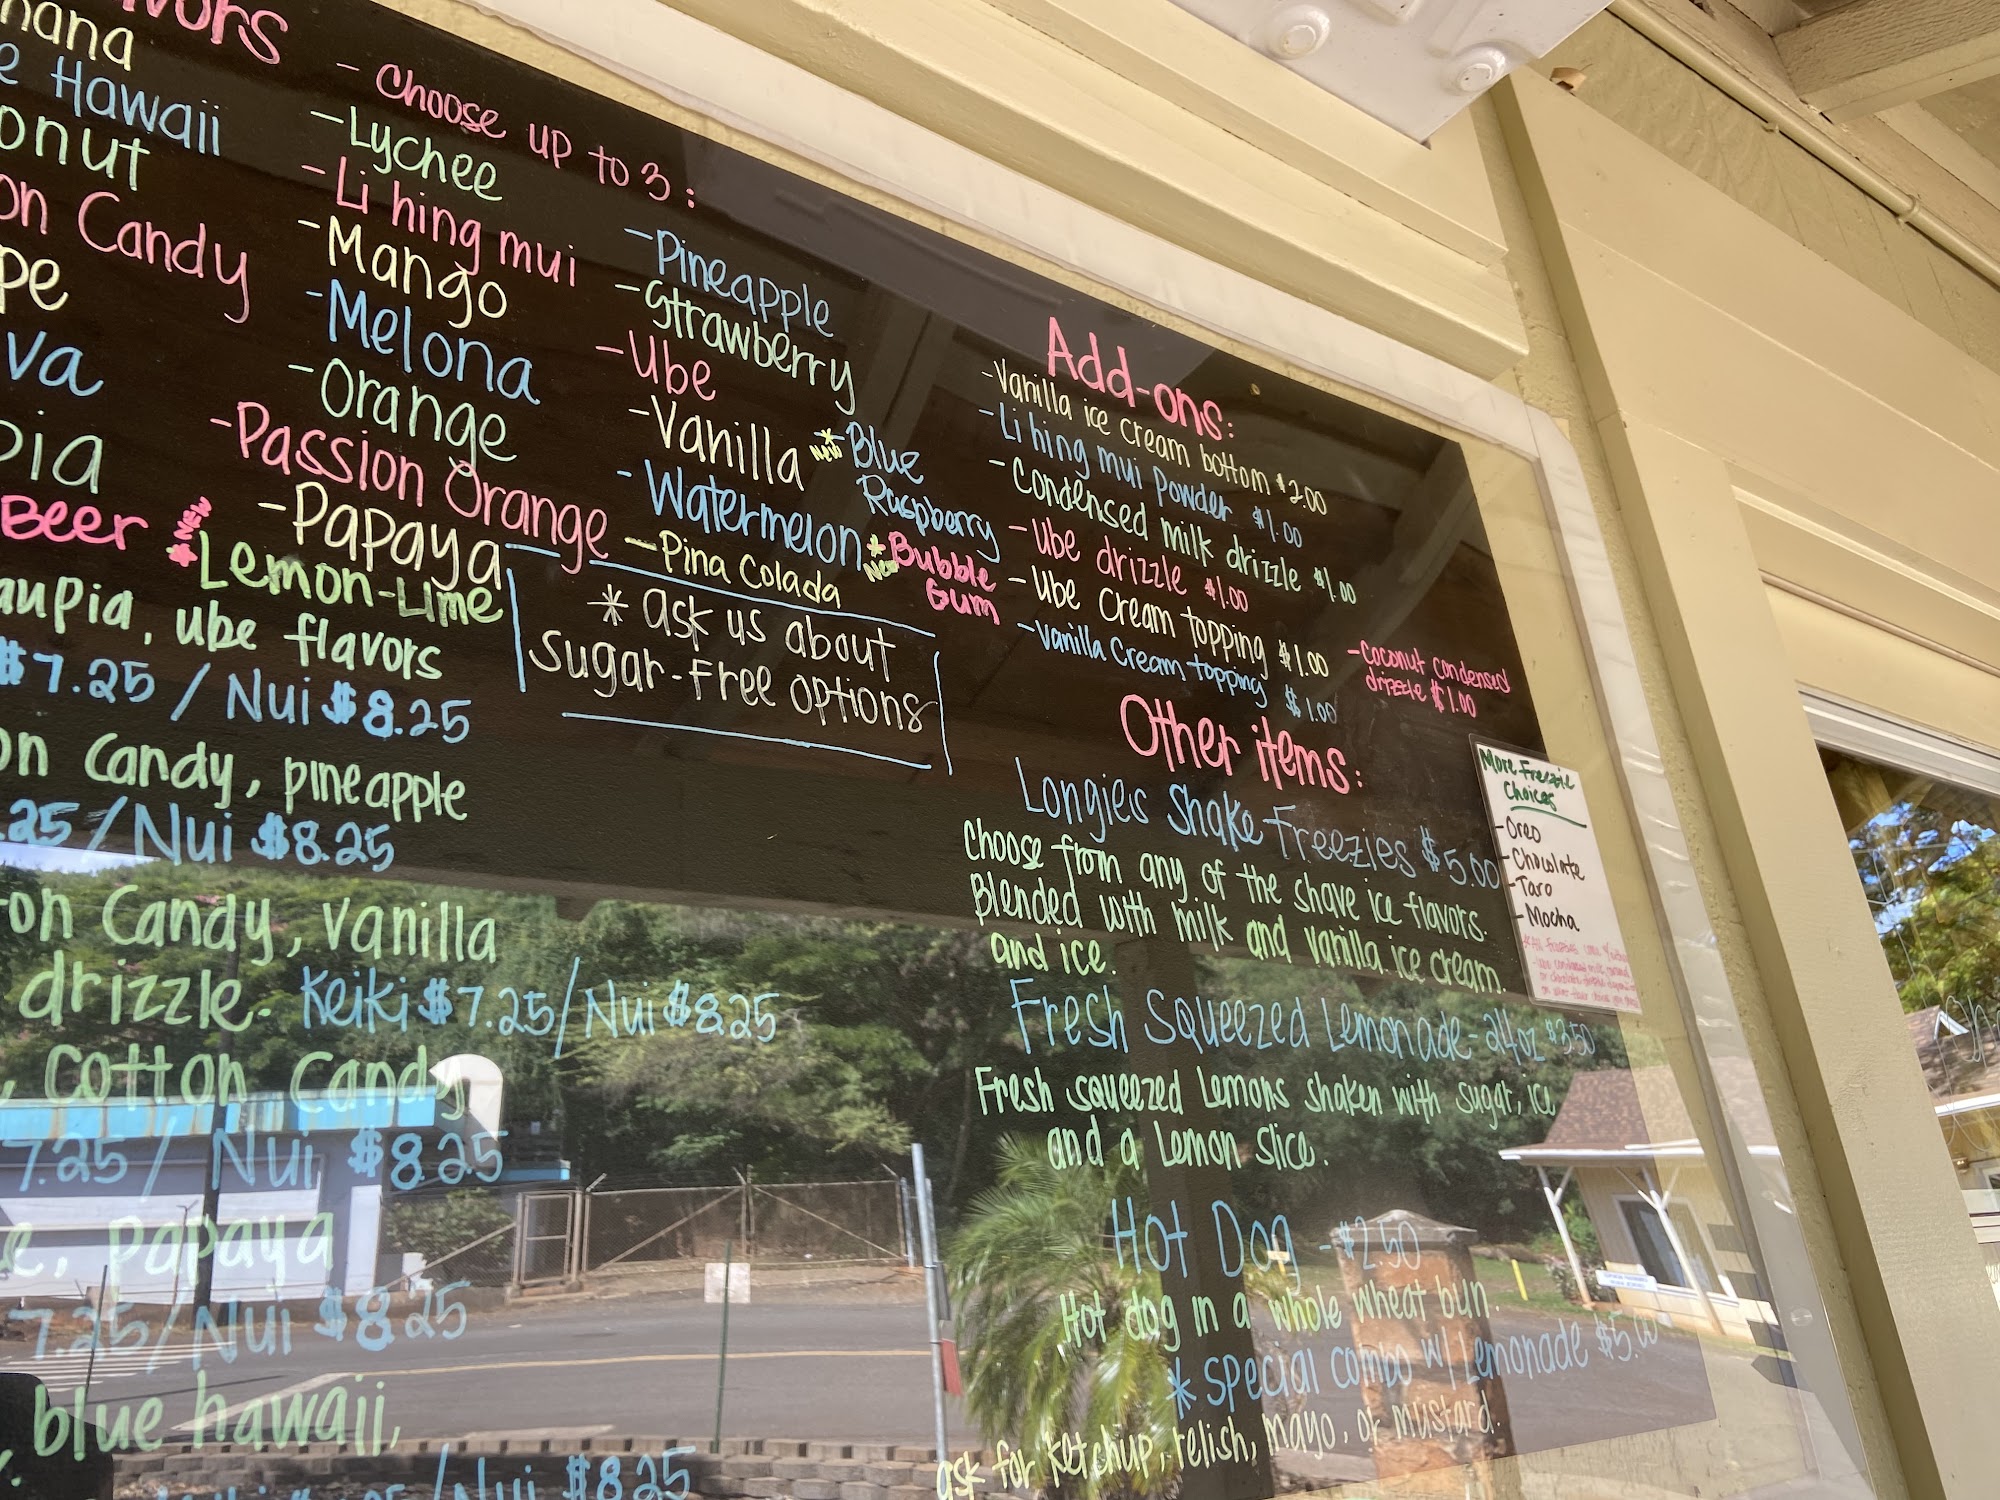 - Choose up to 3:
Hawaii
Candy
Beer
- Lychee
- Li hing mui
- Mango
- Melona
- Orange
- Passion Orange
- Papaya
* NEW Lemon-Lime
- Pineapple
- Strawberry
- Ube
- Vanilla
- Watermelon
- Pina Colada
* New - Blue
Raspberry
* New Bubble
Gum
* ask us about
Sugar-Free options
, ube flavors
$7.25 / Nui $8.25
Candy, pineapple
.25 / Nui $8.25
Candy, vanilla
drizzle. Keiki $7.25/Nui $8.25
, Cotton Candy
7.25 / Nui $8.25
, papaya
7.25/Nui $8.25
blue hawaii,
/Nui $8.25
Add-ons:
- Vanilla ice cream bottom $2.00
- Li hing mui Powder $1.00
- Condensed milk drizzle $1.00
- Ube drizzle $1.00
- Ube Cream topping $1.00
- Vanilla Cream topping $1.00
- Coconut condensed
drizzle $1.00
Other items:
Longie's Shake Freezies $5.00
Choose from any of the shave ice flavors.
Blended with milk and vanilla ice cream.
and ice.
Fresh Squeezed Lemonade - 24oz $3.50
Fresh squeezed Lemons shaken with sugar, ice
and a Lemon slice.
Hot Dog - $2.50
Hot dog in a whole wheat bun.
* Special combo w/ Lemonade $5.00
ask for ketchup, relish, mayo, or mustard.
More Freezie
Choices
- Oreo
- Chocolate
- Taro
- Mocha